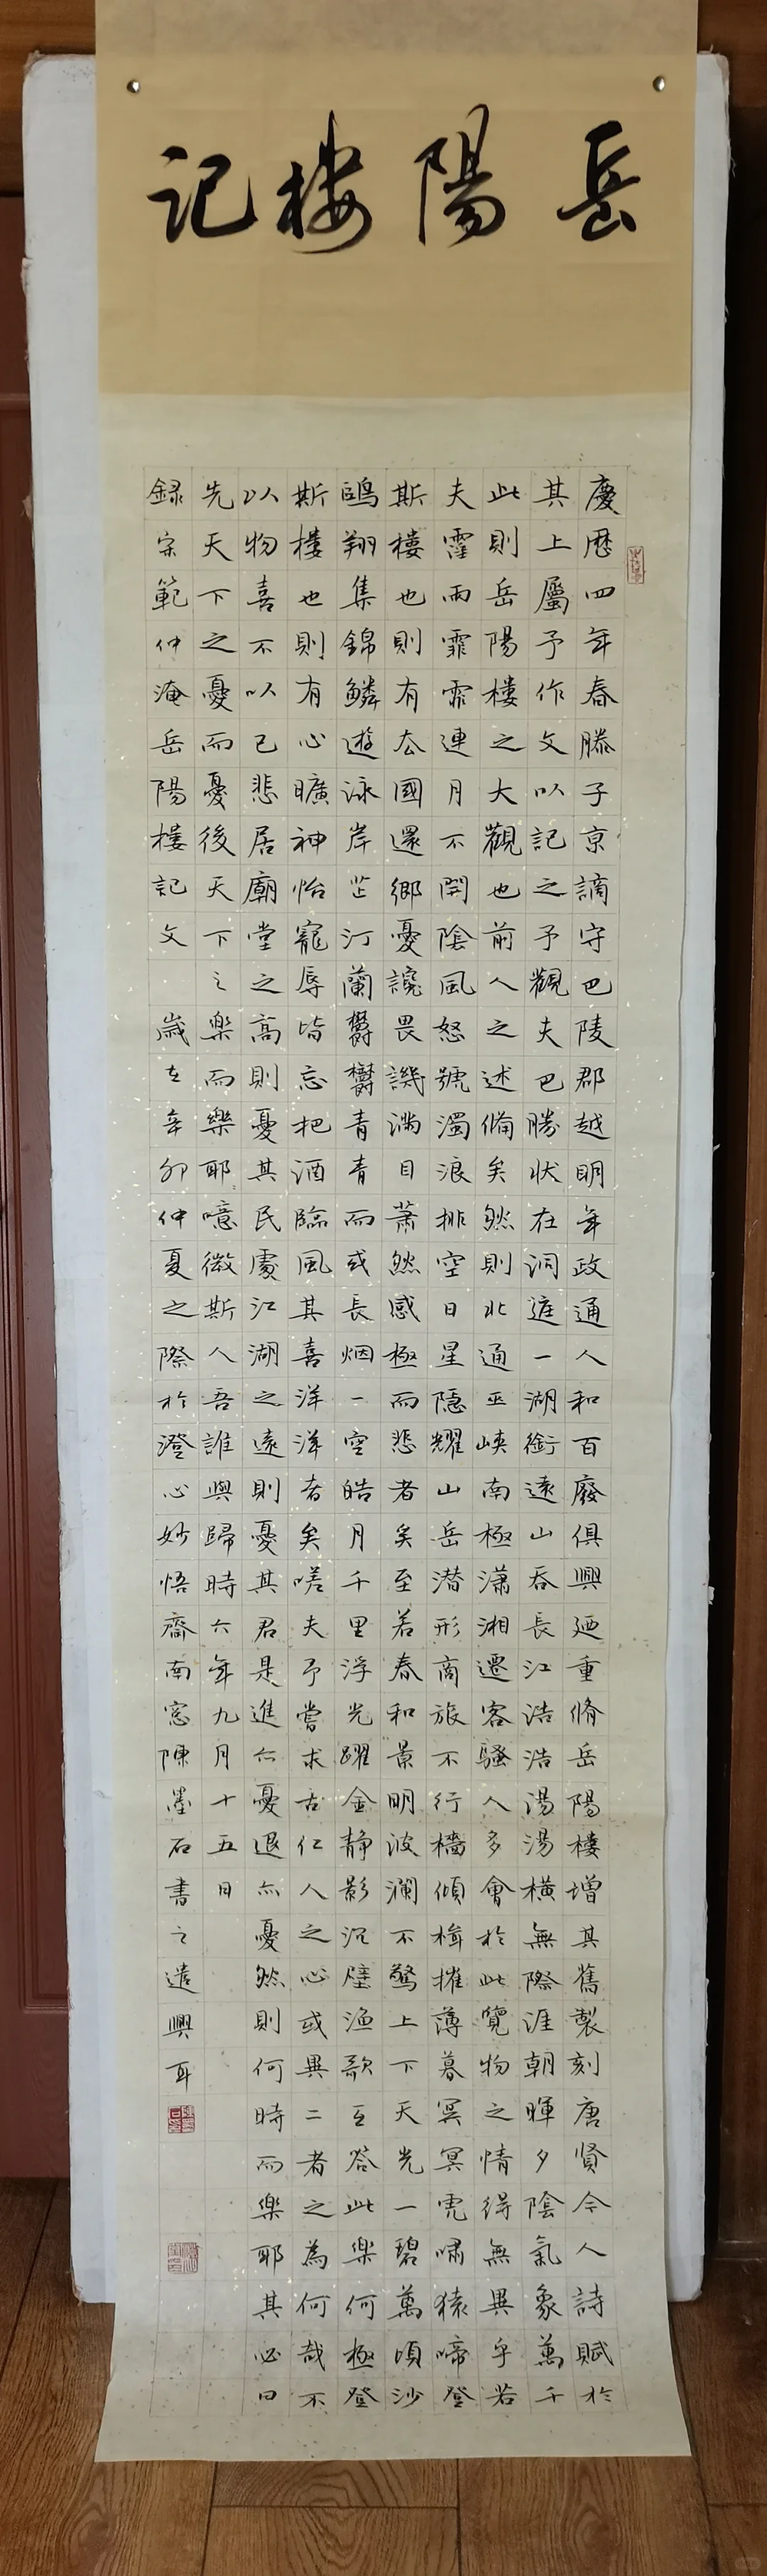 岳陽樓記
慶歷四年春滕子京謫守巴陵郡越明年政通人和百廢俱興廼重脩岳陽樓增其舊製刻唐賢今人詩賦於
其上屬予作文以記之予觀夫巴勝狀在洞庭一湖銜遠山吞長江浩浩湯湯橫無際涯朝暉夕陰氣象萬千
此則岳陽樓之大觀也前人之述備矣然則北通巫峽南極瀟湘遷客騷人多會於此覽物之情得無異乎若
夫霪雨霏霏連月不開陰風怒號濁浪排空日星隱耀山岳潛形商旅不行檣傾楫摧薄暮冥冥虎嘯猿啼登
斯樓也則有去國還鄉憂讒畏譏滿目蕭然感極而悲者矣至若春和景明波瀾不驚上下天光一碧萬頃沙
鷗翔集錦鱗遊泳岸芷汀蘭鬱鬱青青而或長烟一空皓月千里浮光躍金靜影沉璧漁歌互答此樂何極登
斯樓也則有心曠神怡寵辱皆忘把酒臨風其喜洋洋者矣嗟夫予嘗求古仁人之心或異二者之為何哉不
以物喜不以己悲居廟堂之高則憂其民處江湖之遠則憂其君是進亦憂退亦憂然則何時而樂耶其必曰
先天下之憂而憂後天下之樂而樂耶噫微斯人吾誰與歸時六年九月十五日
録宋範仲淹岳陽樓記文 歲在辛卯仲夏之際於澄心妙悟齋南窓陳墨石書之遣興耳